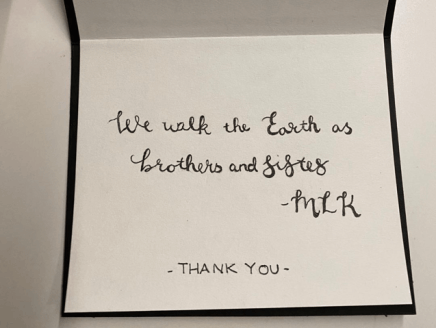 We walk the Earth as
brothers and sistes
-MLK
-THANK YOU-